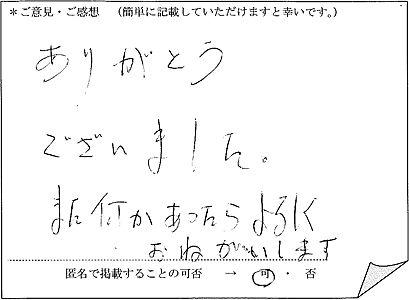 ＊ご意見・ご感想　（簡単に記載していただけますと幸いです。）
ありがとう
ございました。
また何かあったらよろしく
おねがいします
匿名で掲載することの可否　→　可　・　否